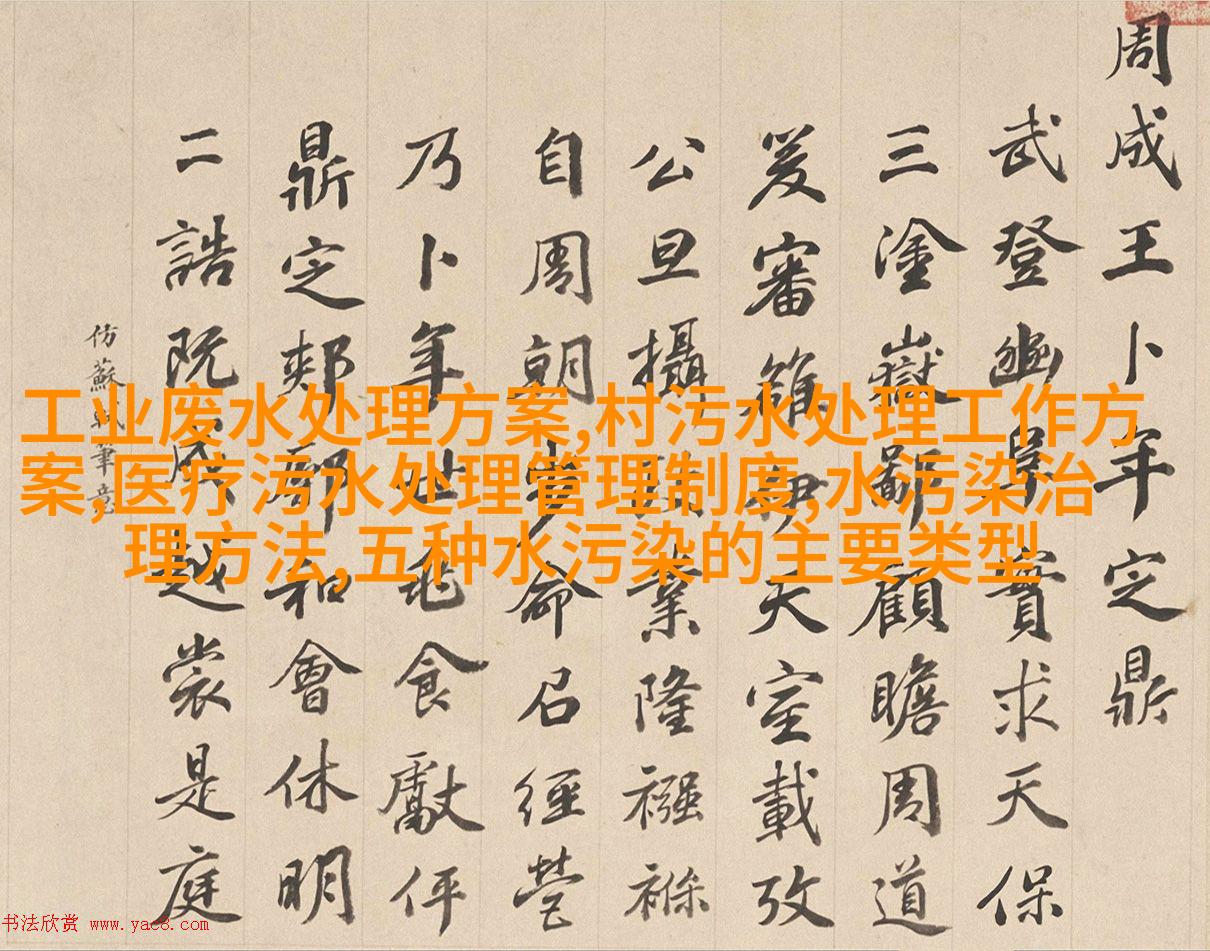 周成王卜年定鼎
武登豳阜實求天保
三塗嶽鄙顧瞻周道
爰審雒伊天室載攷
公旦攝業隆襁褓
自周朝步命召經營
乃卜年世兆食獻伻
鼎定郟鄏和會休明
二誥既成越裳是庭
仿蘇軾筆意
工业废水处理方案,村污水处理工作方
案,医疗污水处理管理制度,水污染治
理方法,五种水污染的主要类型
书法欣赏 www.yac8.com